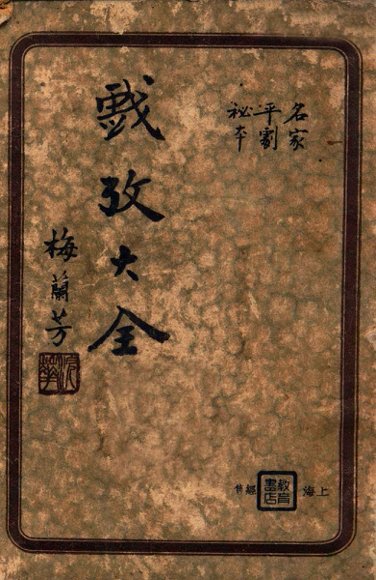 名家
平劇
祕本
戲攷大全
梅蘭芳
上海教育書店經售